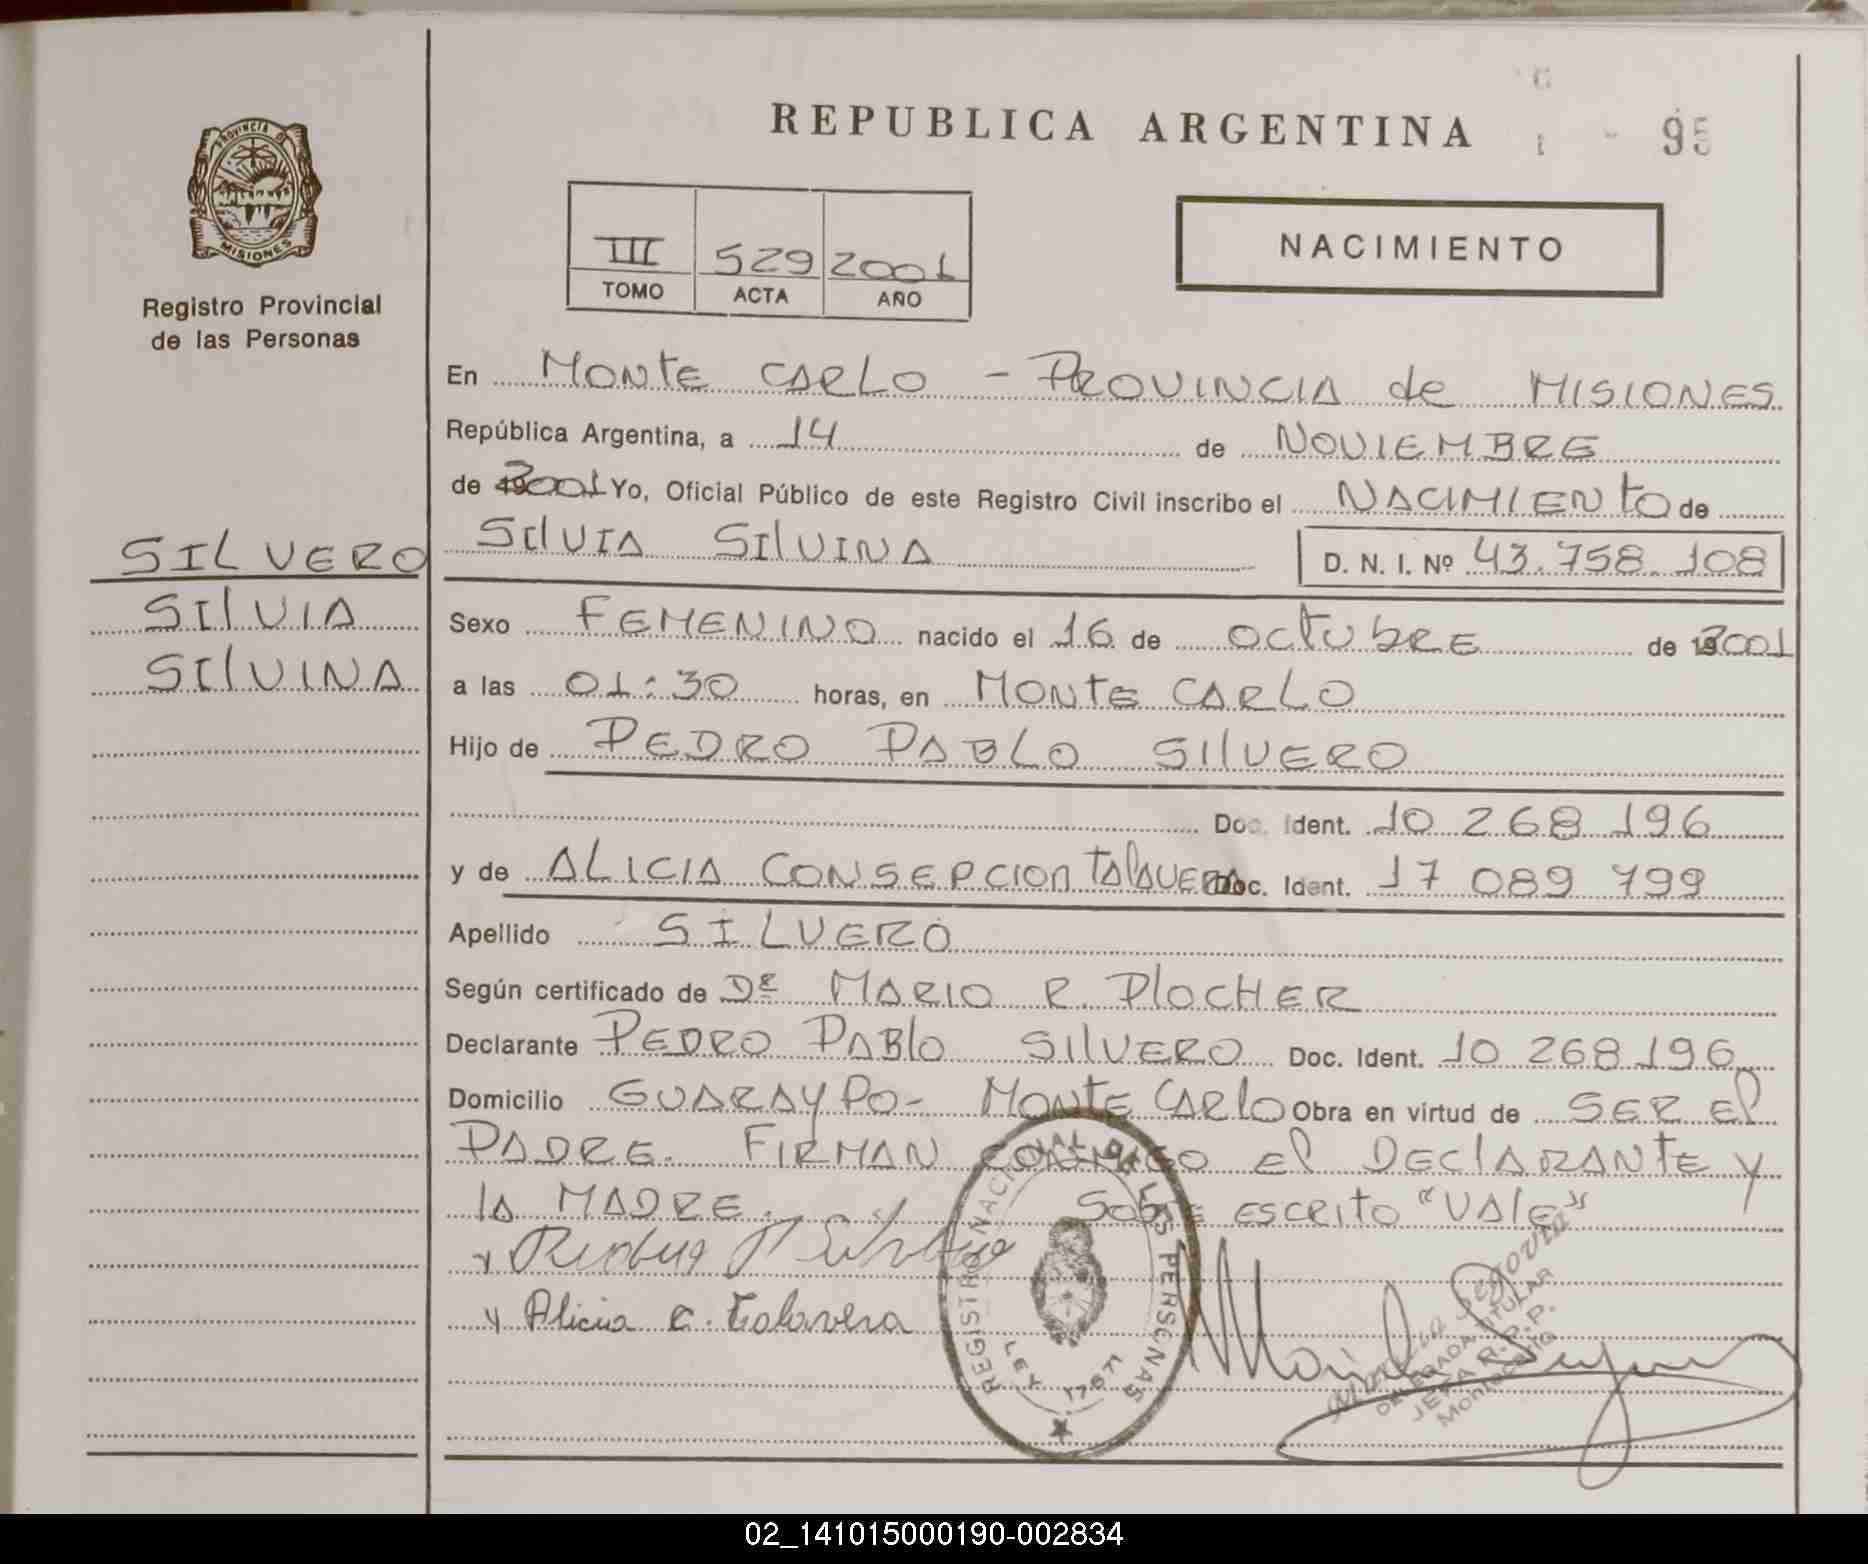 REPUBLICA ARGENTINA
95
PROVINCIA DE
MISIONES
Registro Provincial
de las Personas
III 529 2001
TOMO ACTA AÑO
NACIMIENTO
En MONTE CARLO - PROVINCIA de MISIONES
República Argentina, a 14 de NOVIEMBRE
de 2001 Yo, Oficial Público de este Registro Civil inscribo el NACIMIENTO de
SILVIA SILVINA D. N. I. Nº 43.758.108
SILVERO
SILVIA
SILVINA
Sexo FEMENINO nacido el 16 de OCTUBRE de 2001
a las 01:30 horas, en MONTE CARLO
Hijo de PEDRO PABLO SILVERO
Doc. Ident. 10 268 196
y de ALICIA CONSEPCION TALAVERA Doc. Ident. 17 089 799
Apellido SILVERO
Según certificado de DR MARIO R. PLOCHER
Declarante PEDRO PABLO SILVERO Doc. Ident. 10 268 196
Domicilio GUARAYPO- MONTE CARLO Obra en virtud de SER El
PADRE. FIRMAN CONMIGO El DEClARANTE y
lA MADRE. Sobre escrito "VAle"
Alicia C. Talavera
REGISTRO NACIONAL DE LAS PERSONAS
LEY 17671
Segovia
DELEGADA TITULAR
JEFA R.P.P.
Montecarlo
02_141015000190-002834